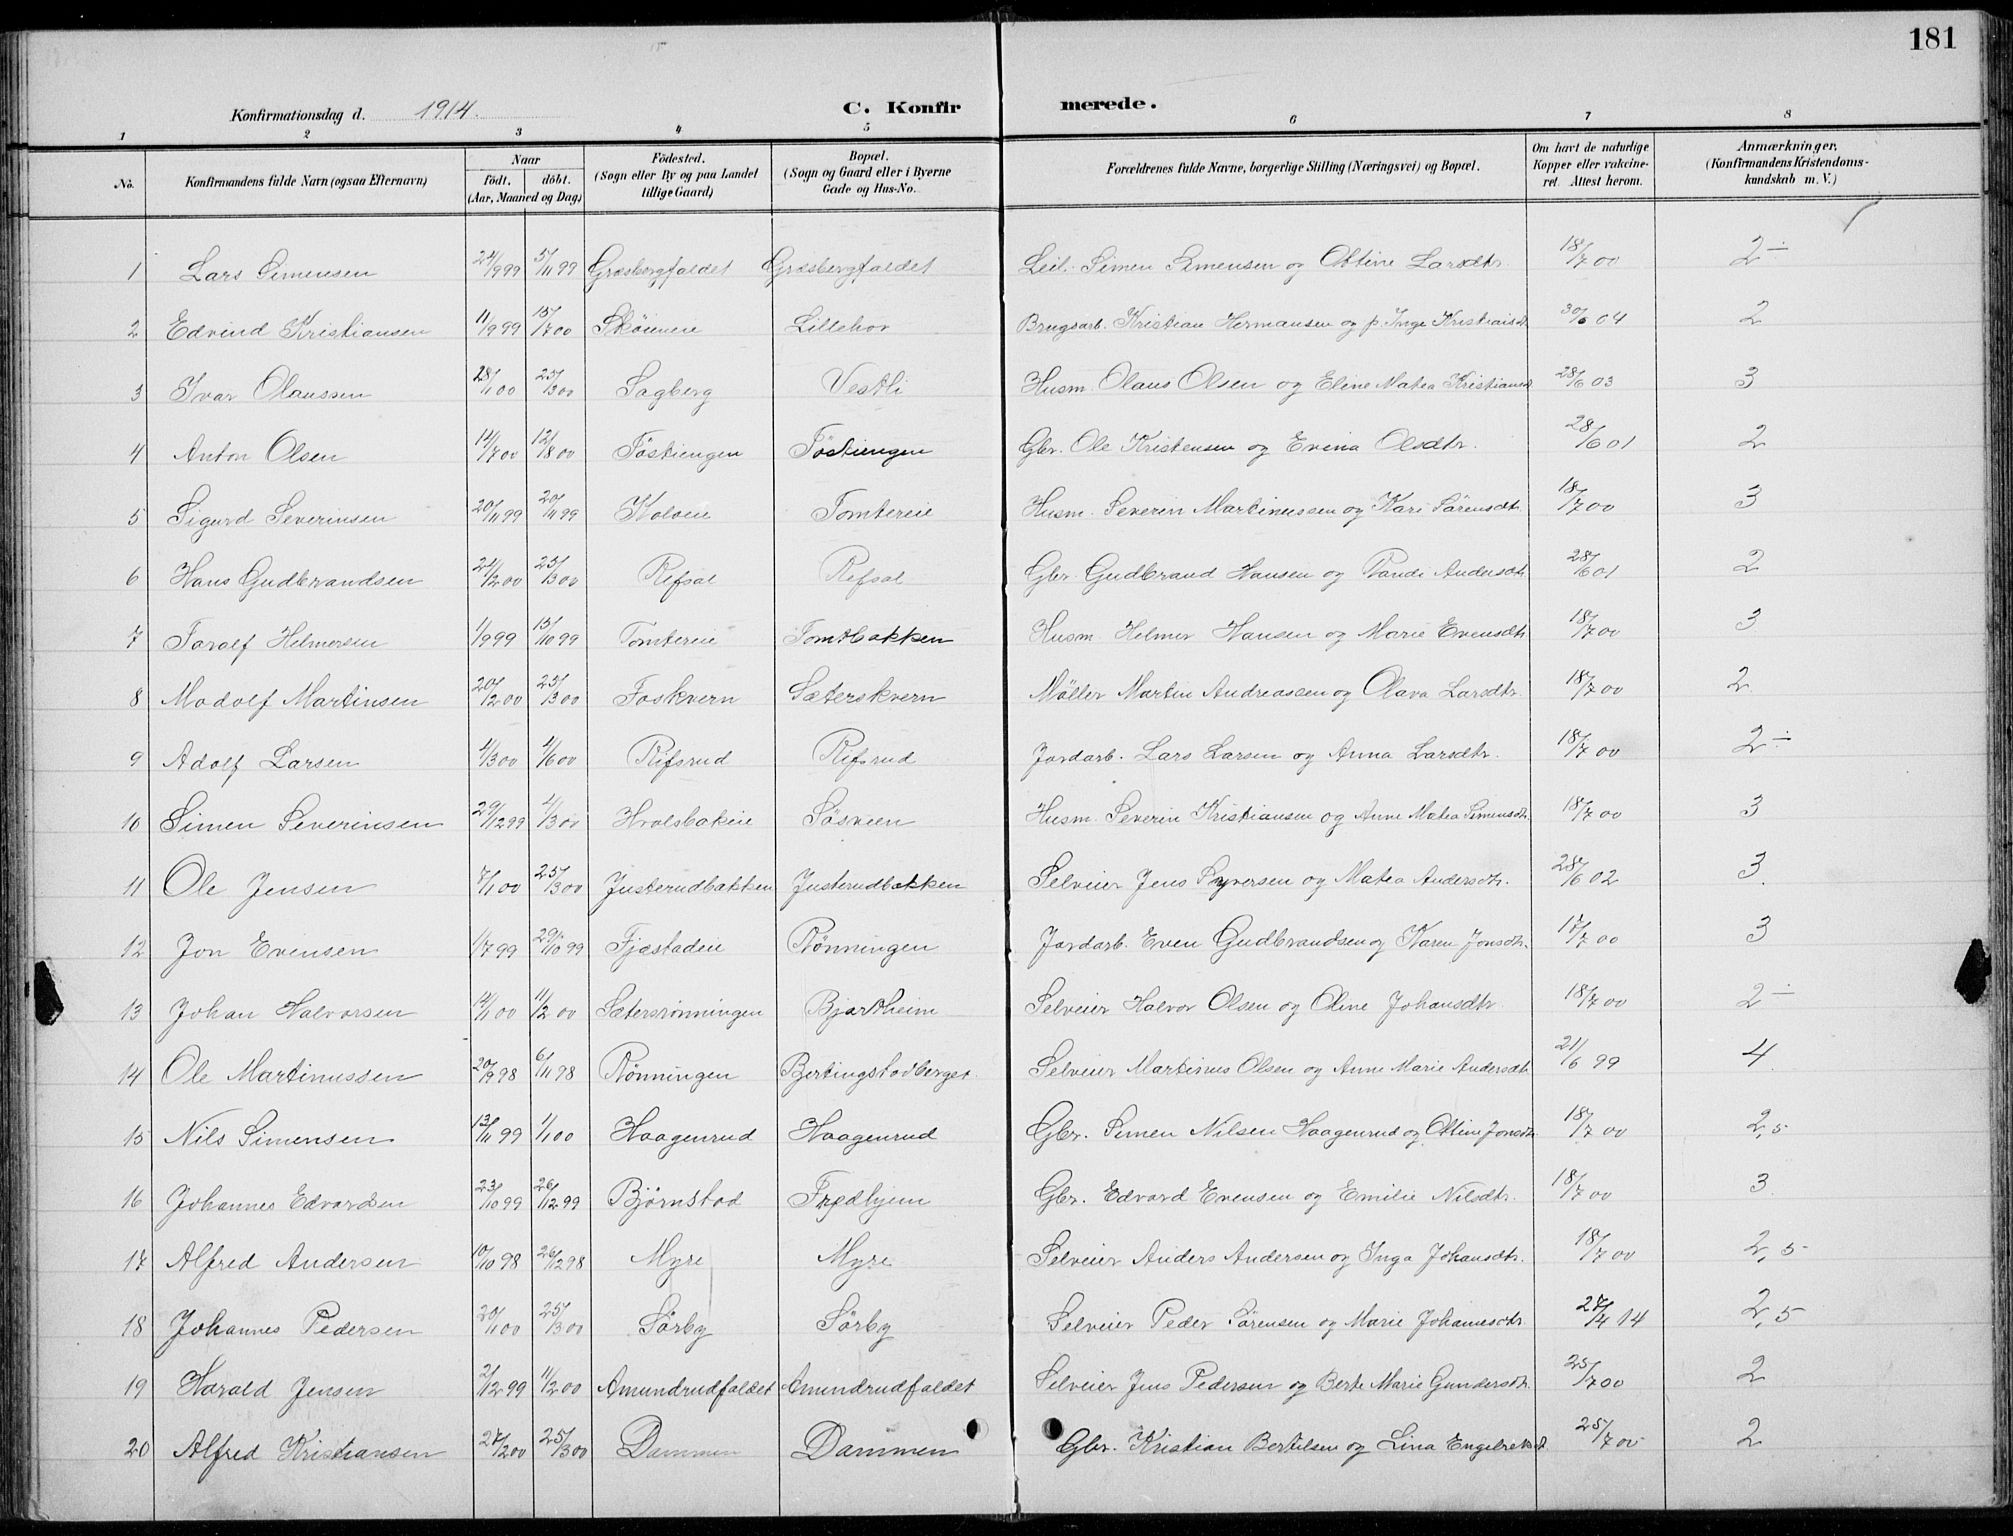 181
Konfirmationsdag d. 1914. C. Konfirmerede.
1 2 3 4 5 6 7 8
No. Konfirmandens fulde Navn (ogsaa Efternavn) Naar födt. döbt. (Aar, Maaned og Dag) Födested. (Sogn eller By og paa Landet tillige Gaard) Bopæl. (Sogn og Gaard eller i Byerne Gade og Hus-No. Forældrenes fulde Navne, borgerlige Stilling (Næringsvei) og Bopæl. Om havt de naturlige Kopper eller vakcineret. Attest herom. Anmærkninger. (Konfirmandens Kristendomskundskab m. V.)
1 Lars Simensen 24/9 99 5/11 99 Græsbergfaldet Græsbergfaldet Leil. Simen Simensen og Ottine Larsdtr. 18/7 00 2 ÷
2 Edvind Kristiansen 11/9 99 15/7 00 Skøieneie Lillehov Brugsarb. Kristian Hermansen og p. Inge Kristiansdt. 30/6 04 2
3 Ivar Olaussen 28/1 00 25/3 00 Sagberg Vestli Husm. Olaus Olsen og Eline Matea Kristiansd. 28/6 03 3
4 Anton Olsen 14/7 00 12/8 00 Föstiengen Föstiengen Gbr. Ole Kristensen og Evina Olsdtr. 28/6 01 2
5 Sigurd Severinsen 20/11 99 20/11 99 Kolveie Tomtereie Husm. Severin Martinussen og Kari Sörensdtr. 18/7 00 3
6 Hans Gudbrandsen 24/2 00 25/3 00 Refsal Refsal Gbr. Gudbrand Hansen og Randi Andersdtr. 28/6 01 2
7 Torolf Helmersen 1/9 99 15/10 99 Tomtereie Tomtbakken Husm. Helmer Hansen og Marie Evensdtr. 18/7 00 3
8 Modolf Martinsen 20/2 00 25/3 00 Foskvern Sæterskvern Møller Martin Andreassen og Olava Larsdtr. 18/7 00 2
9 Adolf Larsen 4/3 00 4/6 00 Rifsrud Rifsrud Jordarb. Lars Larsen og Anna Larsdtr. 18/7 00 2 ÷
10 Simen Severinsen 29/12 99 4/3 00 Hvalsbakeie Søsveen Husm. Severin Kristiansen og Anne Matea Simensdtr. 18/7 00 3
11 Ole Jensen 7/1 00 25/3 00 Justerudbakken Justerudbakken Selveier Jens Syversen og Matea Andersdtr. 28/6 02 3
12 Jon Evensen 1/7 99 29/10 99 Fjæstadeie Rønningen Jordarb. Even Gudbrandsen og Karen Jonsdtr. 17/7 00 3
13 Johan Halvorsen 14/1 00 11/2 00 Sætersrønningen Bjartheim Selveier Halvor Olsen og Oline Johansdtr. 18/7 00 2 ÷
14 Ole Martinussen 20/9 98 6/11 98 Rønningen Bjertingstadberget Selveier Martinus Olsen og Anne Marie Andersdtr. 21/6 99 4
15 Nils Simensen 13/11 99 1/1 00 Haagenrud Haagenrud Gbr. Simen Nilsen Haagenrud og Ottine Jonsdtr. 18/7 00 2,5
16 Johannes Edvardsen 23/10 99 26/12 99 Bjørnstad Fredhjem Gbr. Edvard Evensen og Emilie Nilsdtr. 18/7 00 3
17 Alfred Andersen 10/10 98 26/12 98 Myre Myre Selveier Anders Andersen og Inga Johansdtr. 18/7 00 2,5
18 Johannes Pedersen 20/1 00 25/3 00 Sörby Sörby Selveier Peder Sörensen og Marie Johannesdtr. 27/4 14 2,5
19 Harald Jensen 21/12 99 11/2 00 Amundrudfaldet Amundrudfaldet Selveier Jens Pedersen og Berte Marie Gundersdtr. 25/7 00 2
20 Alfred Kristiansen 27/2 00 25/3 00 Dammen Dammen Gbr. Kristian Bertilsen og Lina Engebretsdt 25/7 00 2